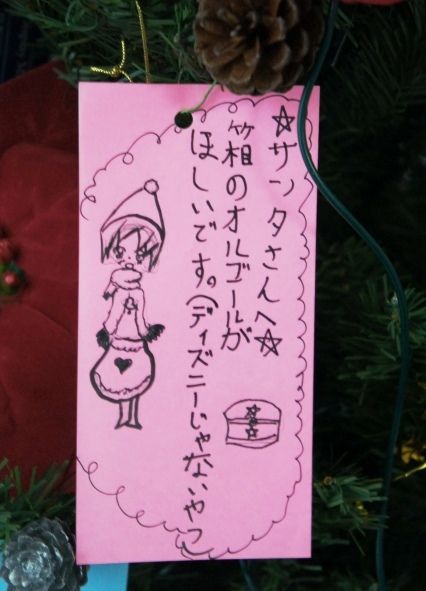 ☆サンタさんへ☆
箱のオルゴールが
ほしいです。(ディズニーじゃないやつ)